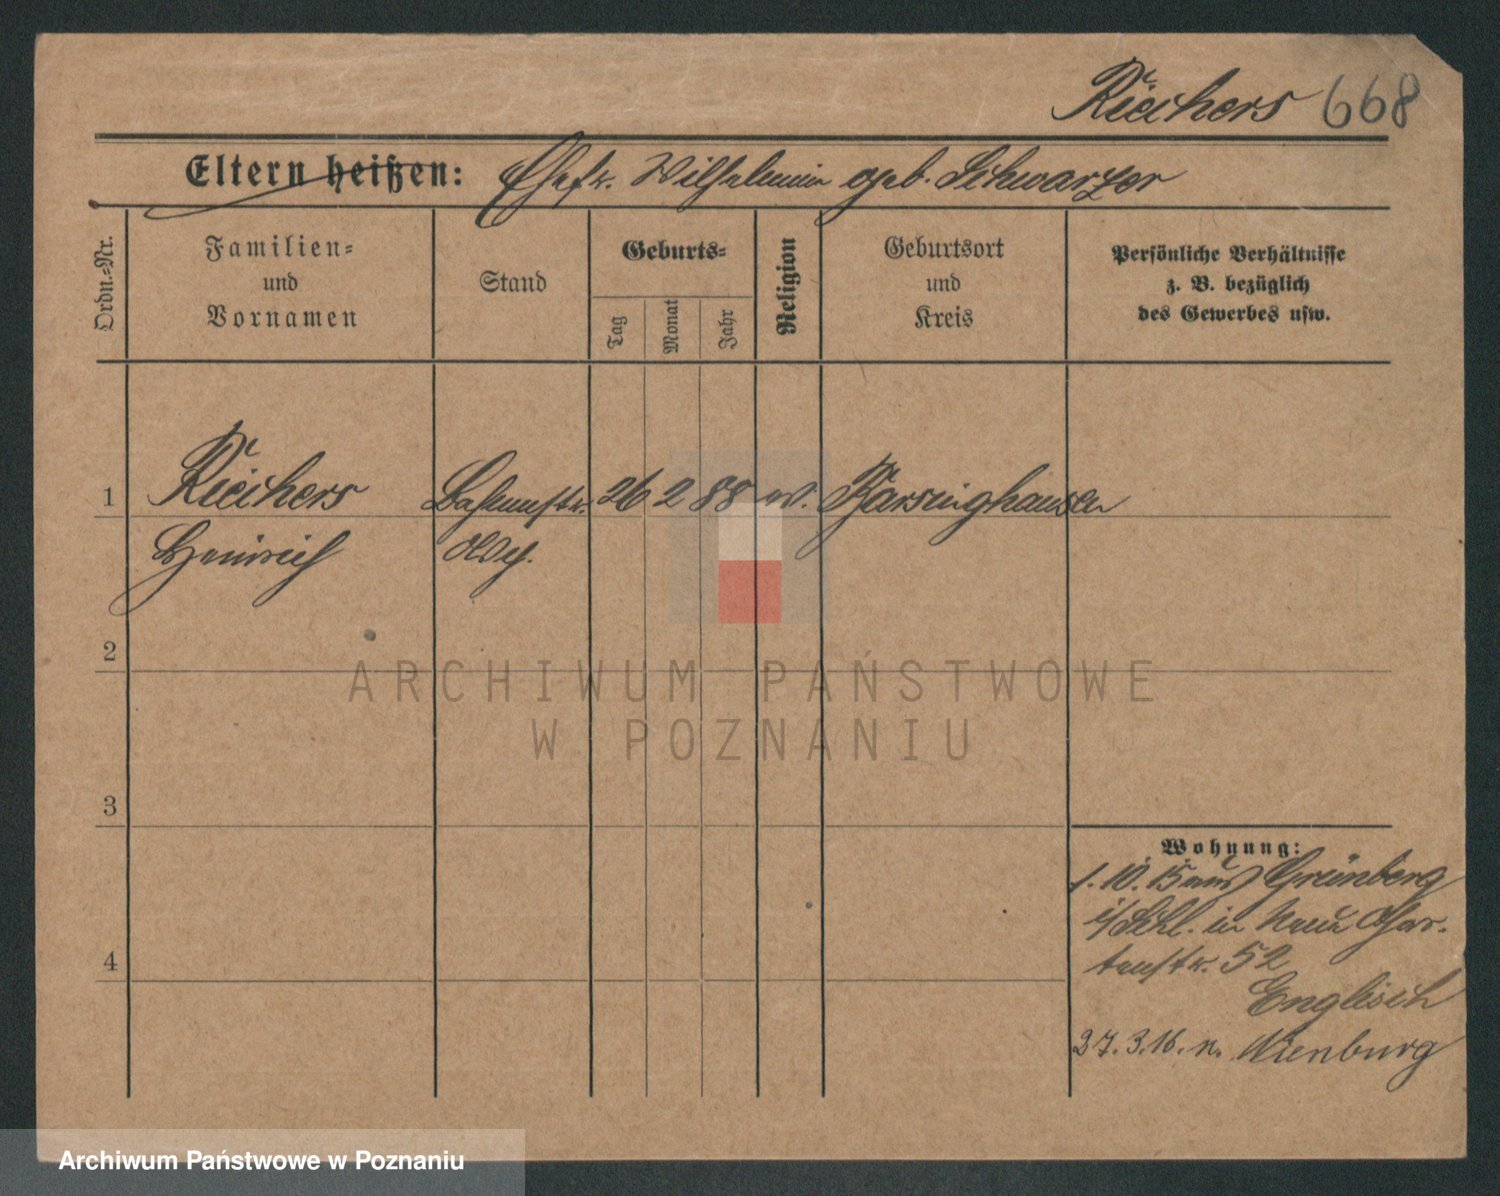 Riechers 668
Eltern heißen: Ehefr. Wilhelmine geb. Schwarzer
Ordn.=Nr.
Familien=
und
Vornamen
Stand
Geburts=
Tag
Monat
Jahr
Religion
Geburtsort
und
Kreis
Persönliche Verhältnisse
z. B. bezüglich
des Gewerbes usw.
1 Riechers 26 2 88 ev. Barsinghausen
Heinrich
2
3
4
Wohnung:
1. 10. 15 aus Grünberg
i/Schl. in Neue Gar-
tenstr. 52
Englisch
27. 3. 16. n. Nienburg
ARCHIWUM PAŃSTWOWE
W POZNANIU
Archiwum Państwowe w Poznaniu